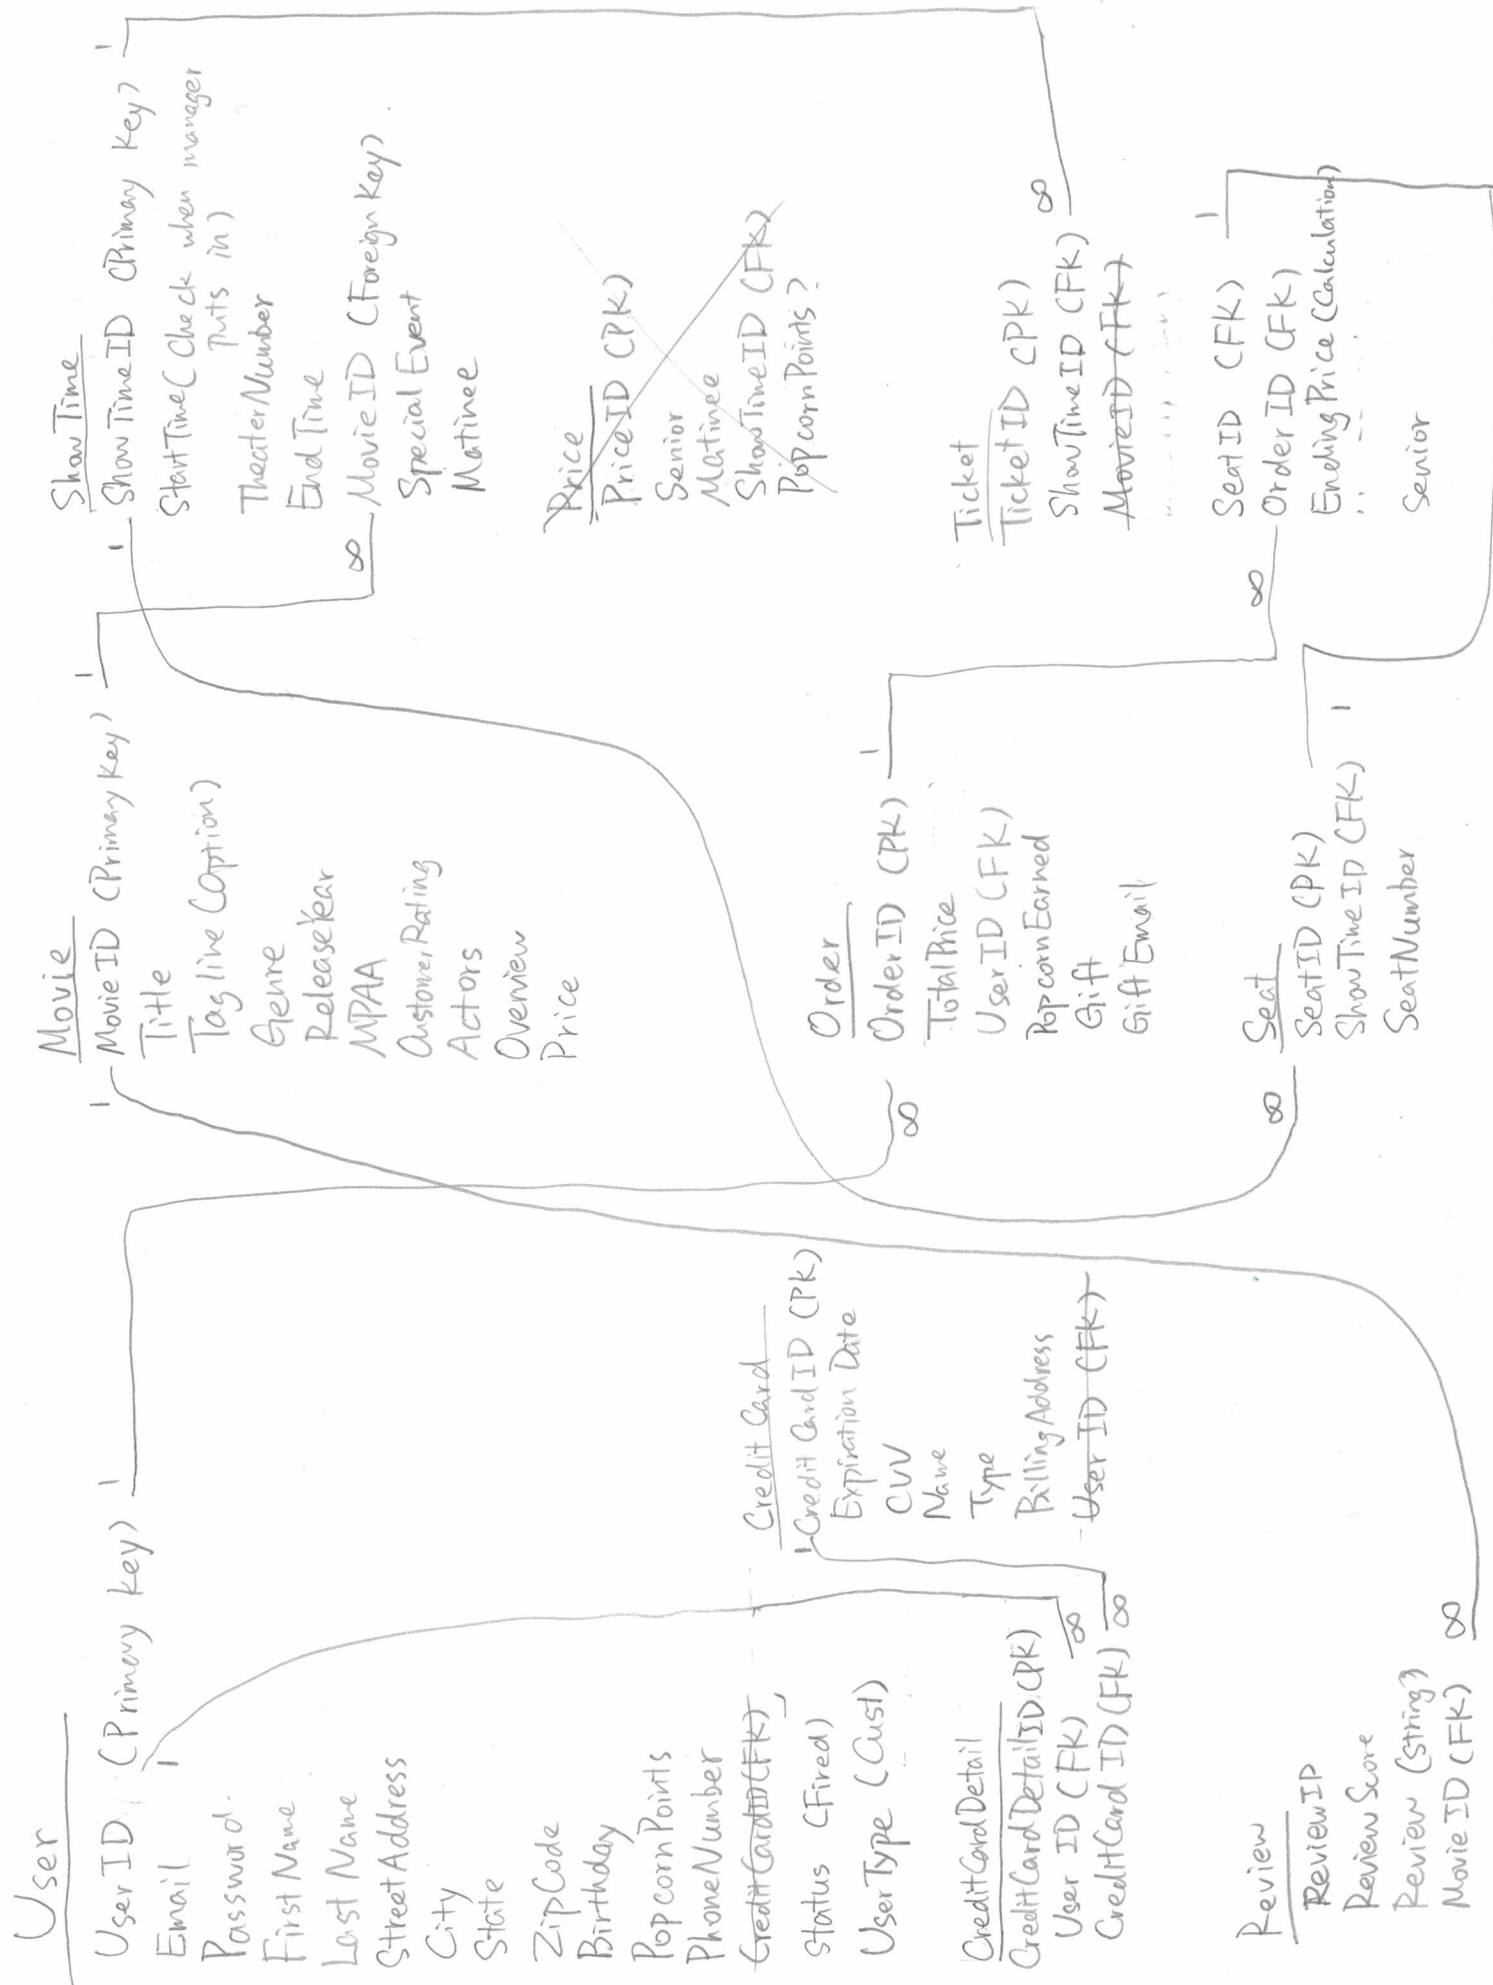 User
UserID (Primary key)
Email
Password.
First Name
Last Name
Street Address
City
State
ZipCode
Birthday
PopcornPoints
PhoneNumber
CreditCardID(FK)
Status (Fired)
UserType (Cust)
CreditCardDetail
CreditCardDetailID (PK)
User ID (FK)
CreditCard ID (FK)
Review
ReviewID
Review Score
Review (string)
Movie ID (FK)
Credit Card
Credit Card ID (PK)
Expiration Date
CVV
Name
Type
Billing Address
User ID (FK)
Movie
MovieID (Primary key)
Title
Tagline (Option)
Genre
ReleaseYear
MPAA
CustomerRating
Actors
Overview
Price
Order
Order ID (PK)
TotalPrice
User ID (FK)
PopcornEarned
Gift
Gift Email
Seat
SeatID (PK)
ShowTimeID (FK)
SeatNumber
ShowTime
ShowTimeID (Primary key)
StartTime (Check when manager
puts in)
TheaterNumber
EndTime
MovieID (Foreign Key)
Special Event
Matinee
Price
PriceID (PK)
Senior
Matinee
ShowTimeID (FK)
PopcornPoints?
Ticket
TicketID (PK)
ShowTimeID (FK)
MovieID (FK)
SeatID (FK)
Order ID (FK)
EndingPrice (Calculation)
Senior
1
1
∞
∞
1
∞
∞
1
1
∞
1
∞
1
1
∞
1
∞
1